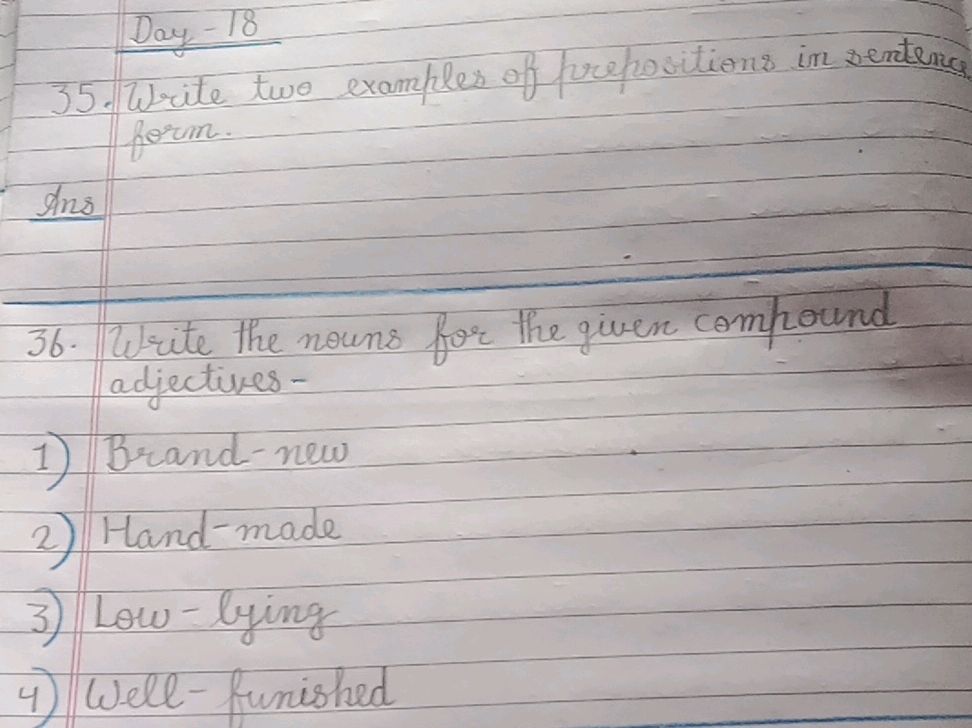 Day - 18
35. Write two examples of prepositions in sentence
form.
Ans
36. Write the nouns for the given compound
adjectives -
1) Brand-new
2) Hand-made
3) Low-lying
4) Well-funished